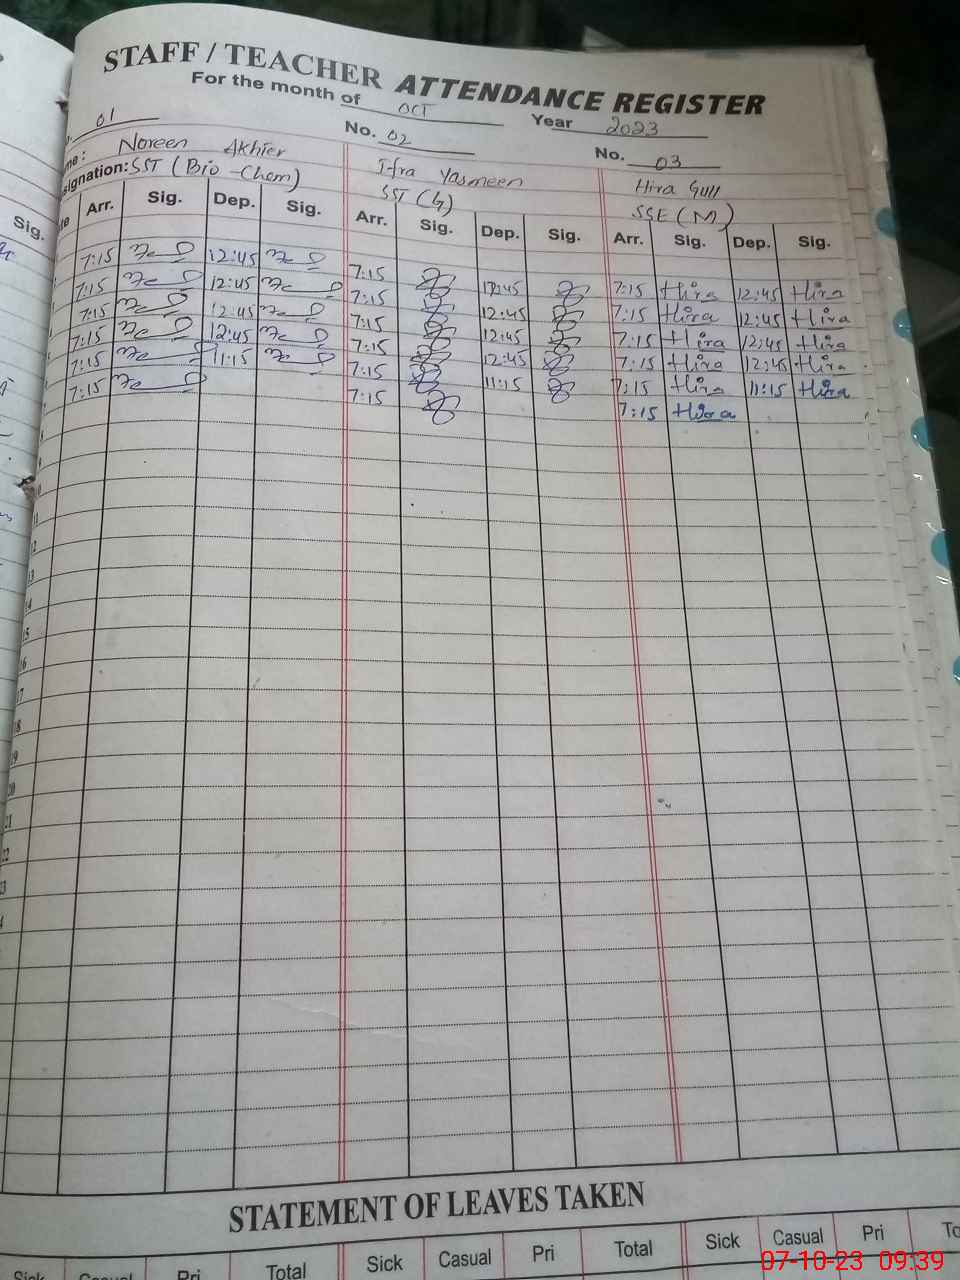 STAFF / TEACHER ATTENDANCE REGISTER
For the month of OCT Year 2023
01 No. 02 No. 03
me: Noreen Akhter Ifra Yasmeen Hira Gull
signation: SST (Bio-Chem) SST (G) SSE (M)
te Arr. Sig. Dep. Sig. Arr. Sig. Dep. Sig. Arr. Sig. Dep. Sig.
Sig.
7:15 12:45 7:15 12:45 7:15 Hira 12:45 Hira
7:15 12:45 7:15 12:45 7:15 Hira 12:45 Hira
7:15 12:45 7:15 12:45 7:15 Hira 12:45 Hira
7:15 12:45 7:15 12:45 7:15 Hira 12:45 Hira
7:15 11:15 7:15 11:15 7:15 Hira 11:15 Hira
7:15 7:15 7:15 Hira
11
12
13
14
15
16
17
18
19
20
21
22
23
STATEMENT OF LEAVES TAKEN
Sick Casual Pri Total Sick Casual Pri Total Sick Casual Pri To
07-10-23 09:39